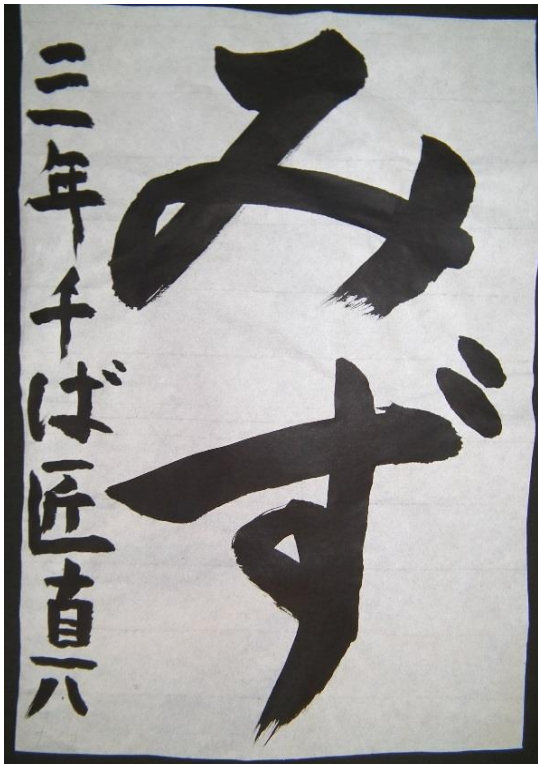 みず
三年千ば匠真